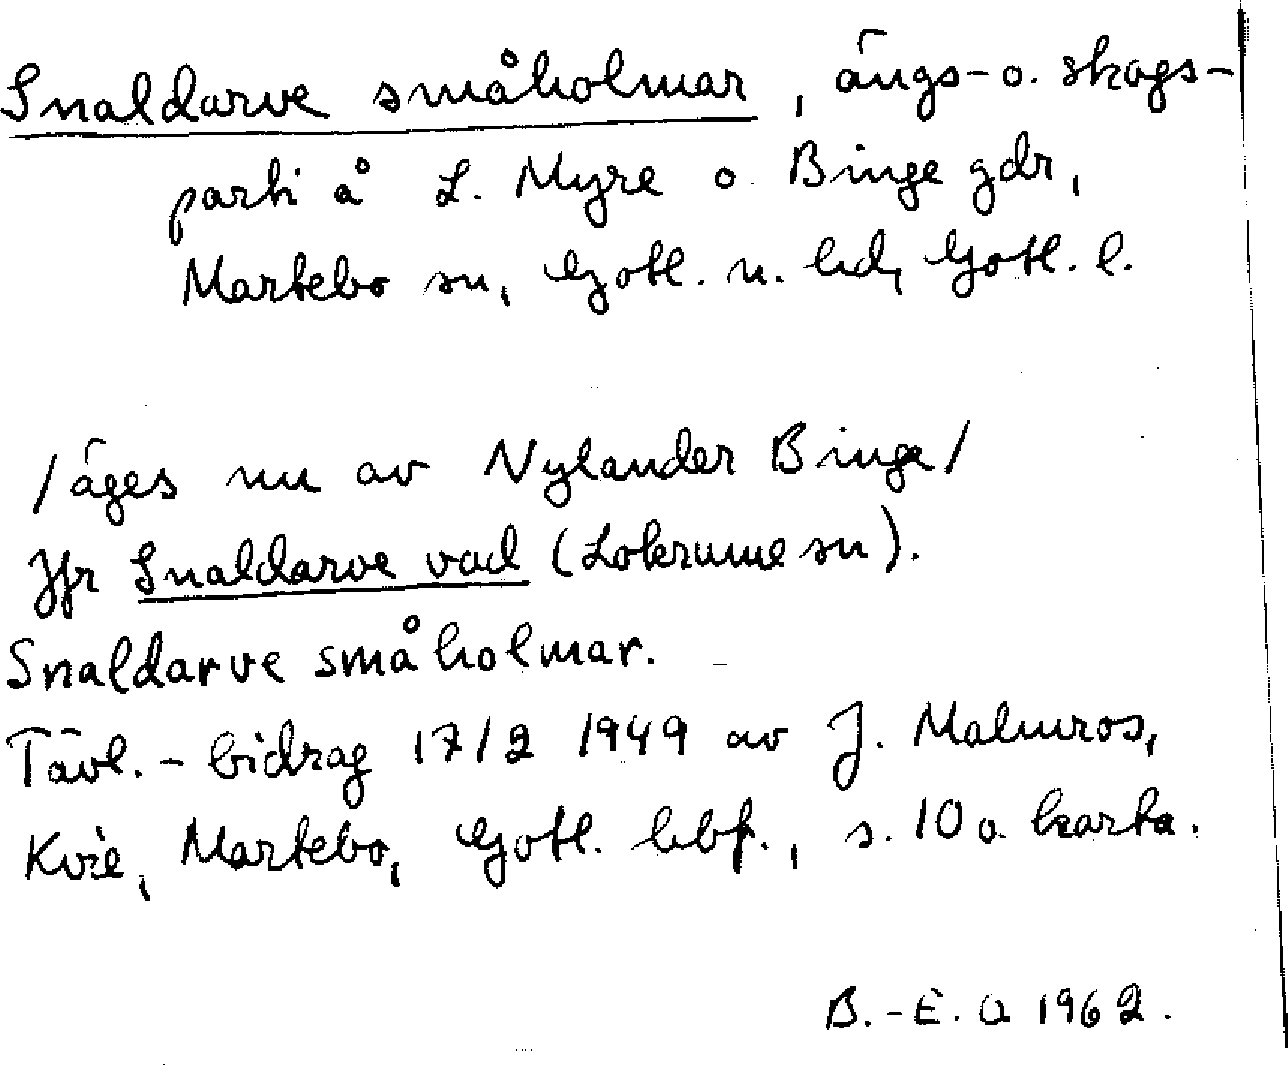 Snaldarve småholmar, ängs- o. skogs-
parti å L. Myre o. Binge gdr,
Martebo sn, Gotl. n. hd, Gotl. l.
/äges nu av Nylander Binge/
Jfr Snaldarve vad (Lokrume sn).
Snaldarve småholmar.
Tävl.-bidrag 17/2 1949 av J. Malmros,
Kvie, Martebo, Gotl. bbf., s. 10 o. karta.
B.-E. O 1962.